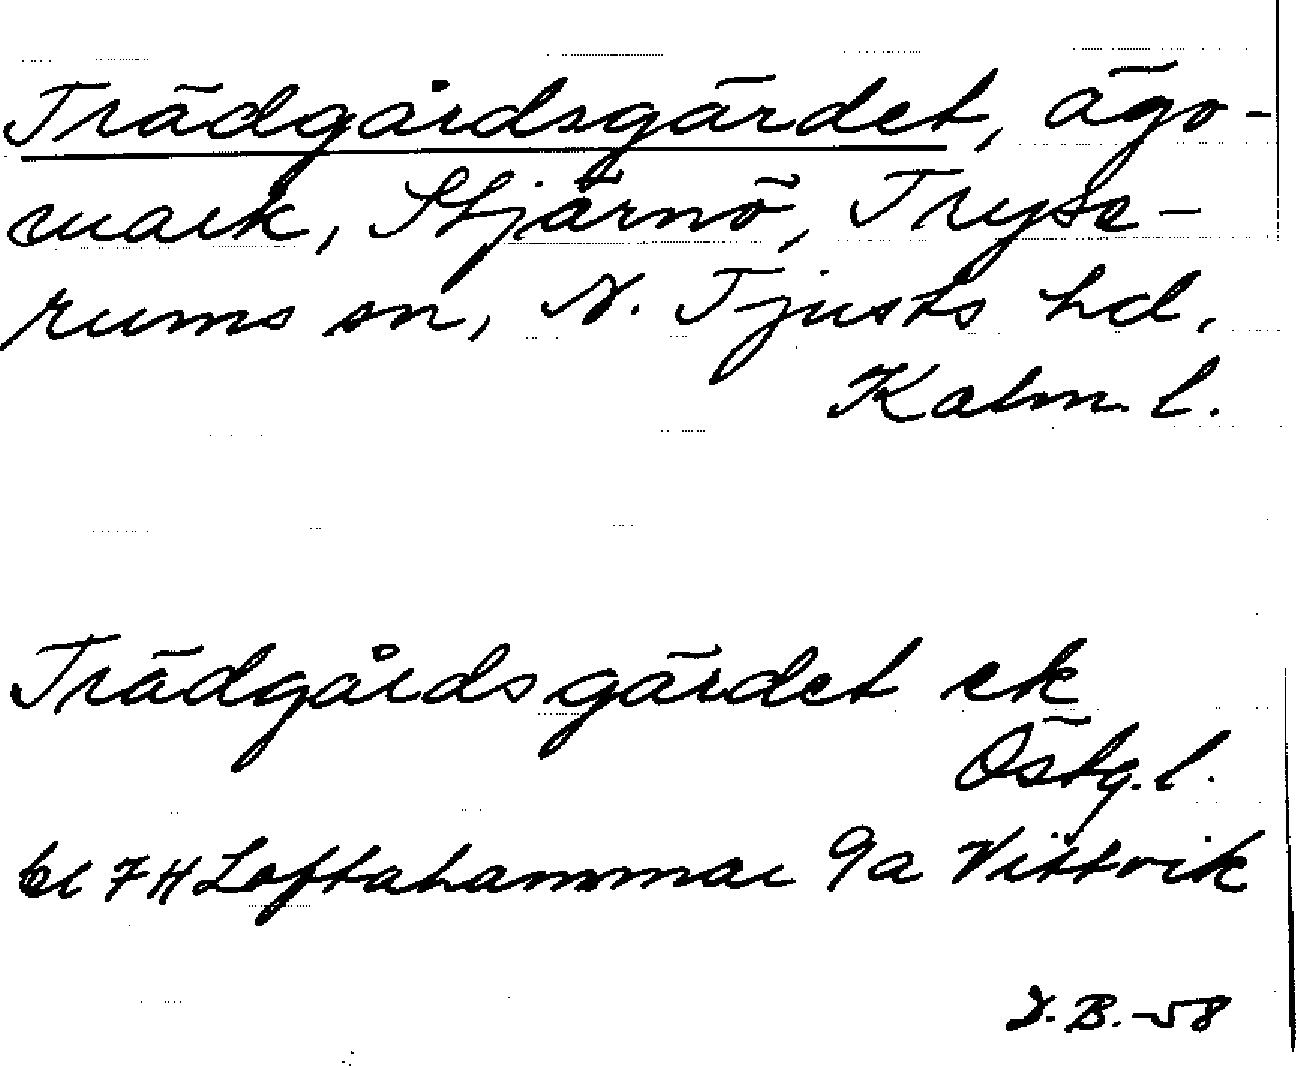 Trädgårdsgärdet, ägo-
mark, Stjärnö, Tryse-
rums sn, N. Tjusts hd,
Kalm. l.
Trädgårdsgärdet ek
Östg. l.
bl 7H Loftahammar 9a Vittvik
I.B.-58